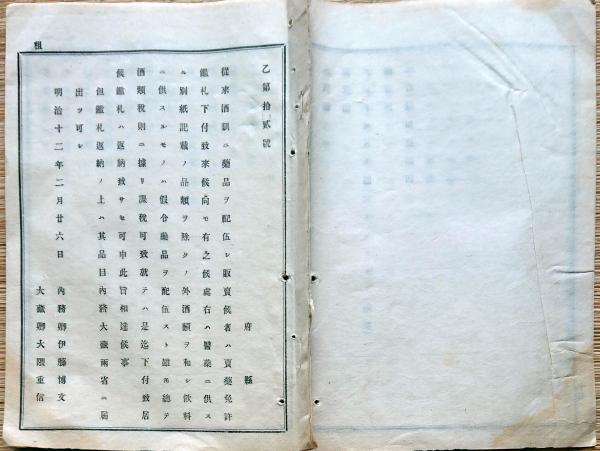 租
乙第拾貳號
府縣
從來酒類ニ藥品ヲ配伍シ販賣候者ハ賣藥免許
鑑札下付致來候向モ有之候處右ハ醫藥ニ供ス
ル別紙記載ノ品類ヲ除クノ外酒類ヲ和シ飲料
ニ供スルモノハ假令藥品ヲ配伍スト雖モ總テ
酒類稅則ニ據リ課稅可致就テハ是迄下付致居
候鑑札ハ返納致サセ可申此旨相達候事
但鑑札返納ノ上ハ其品目內務大藏兩省ニ屆
出ヲ可シ
明治十二年二月廿六日
內務卿伊藤博文
大藏卿大隈重信